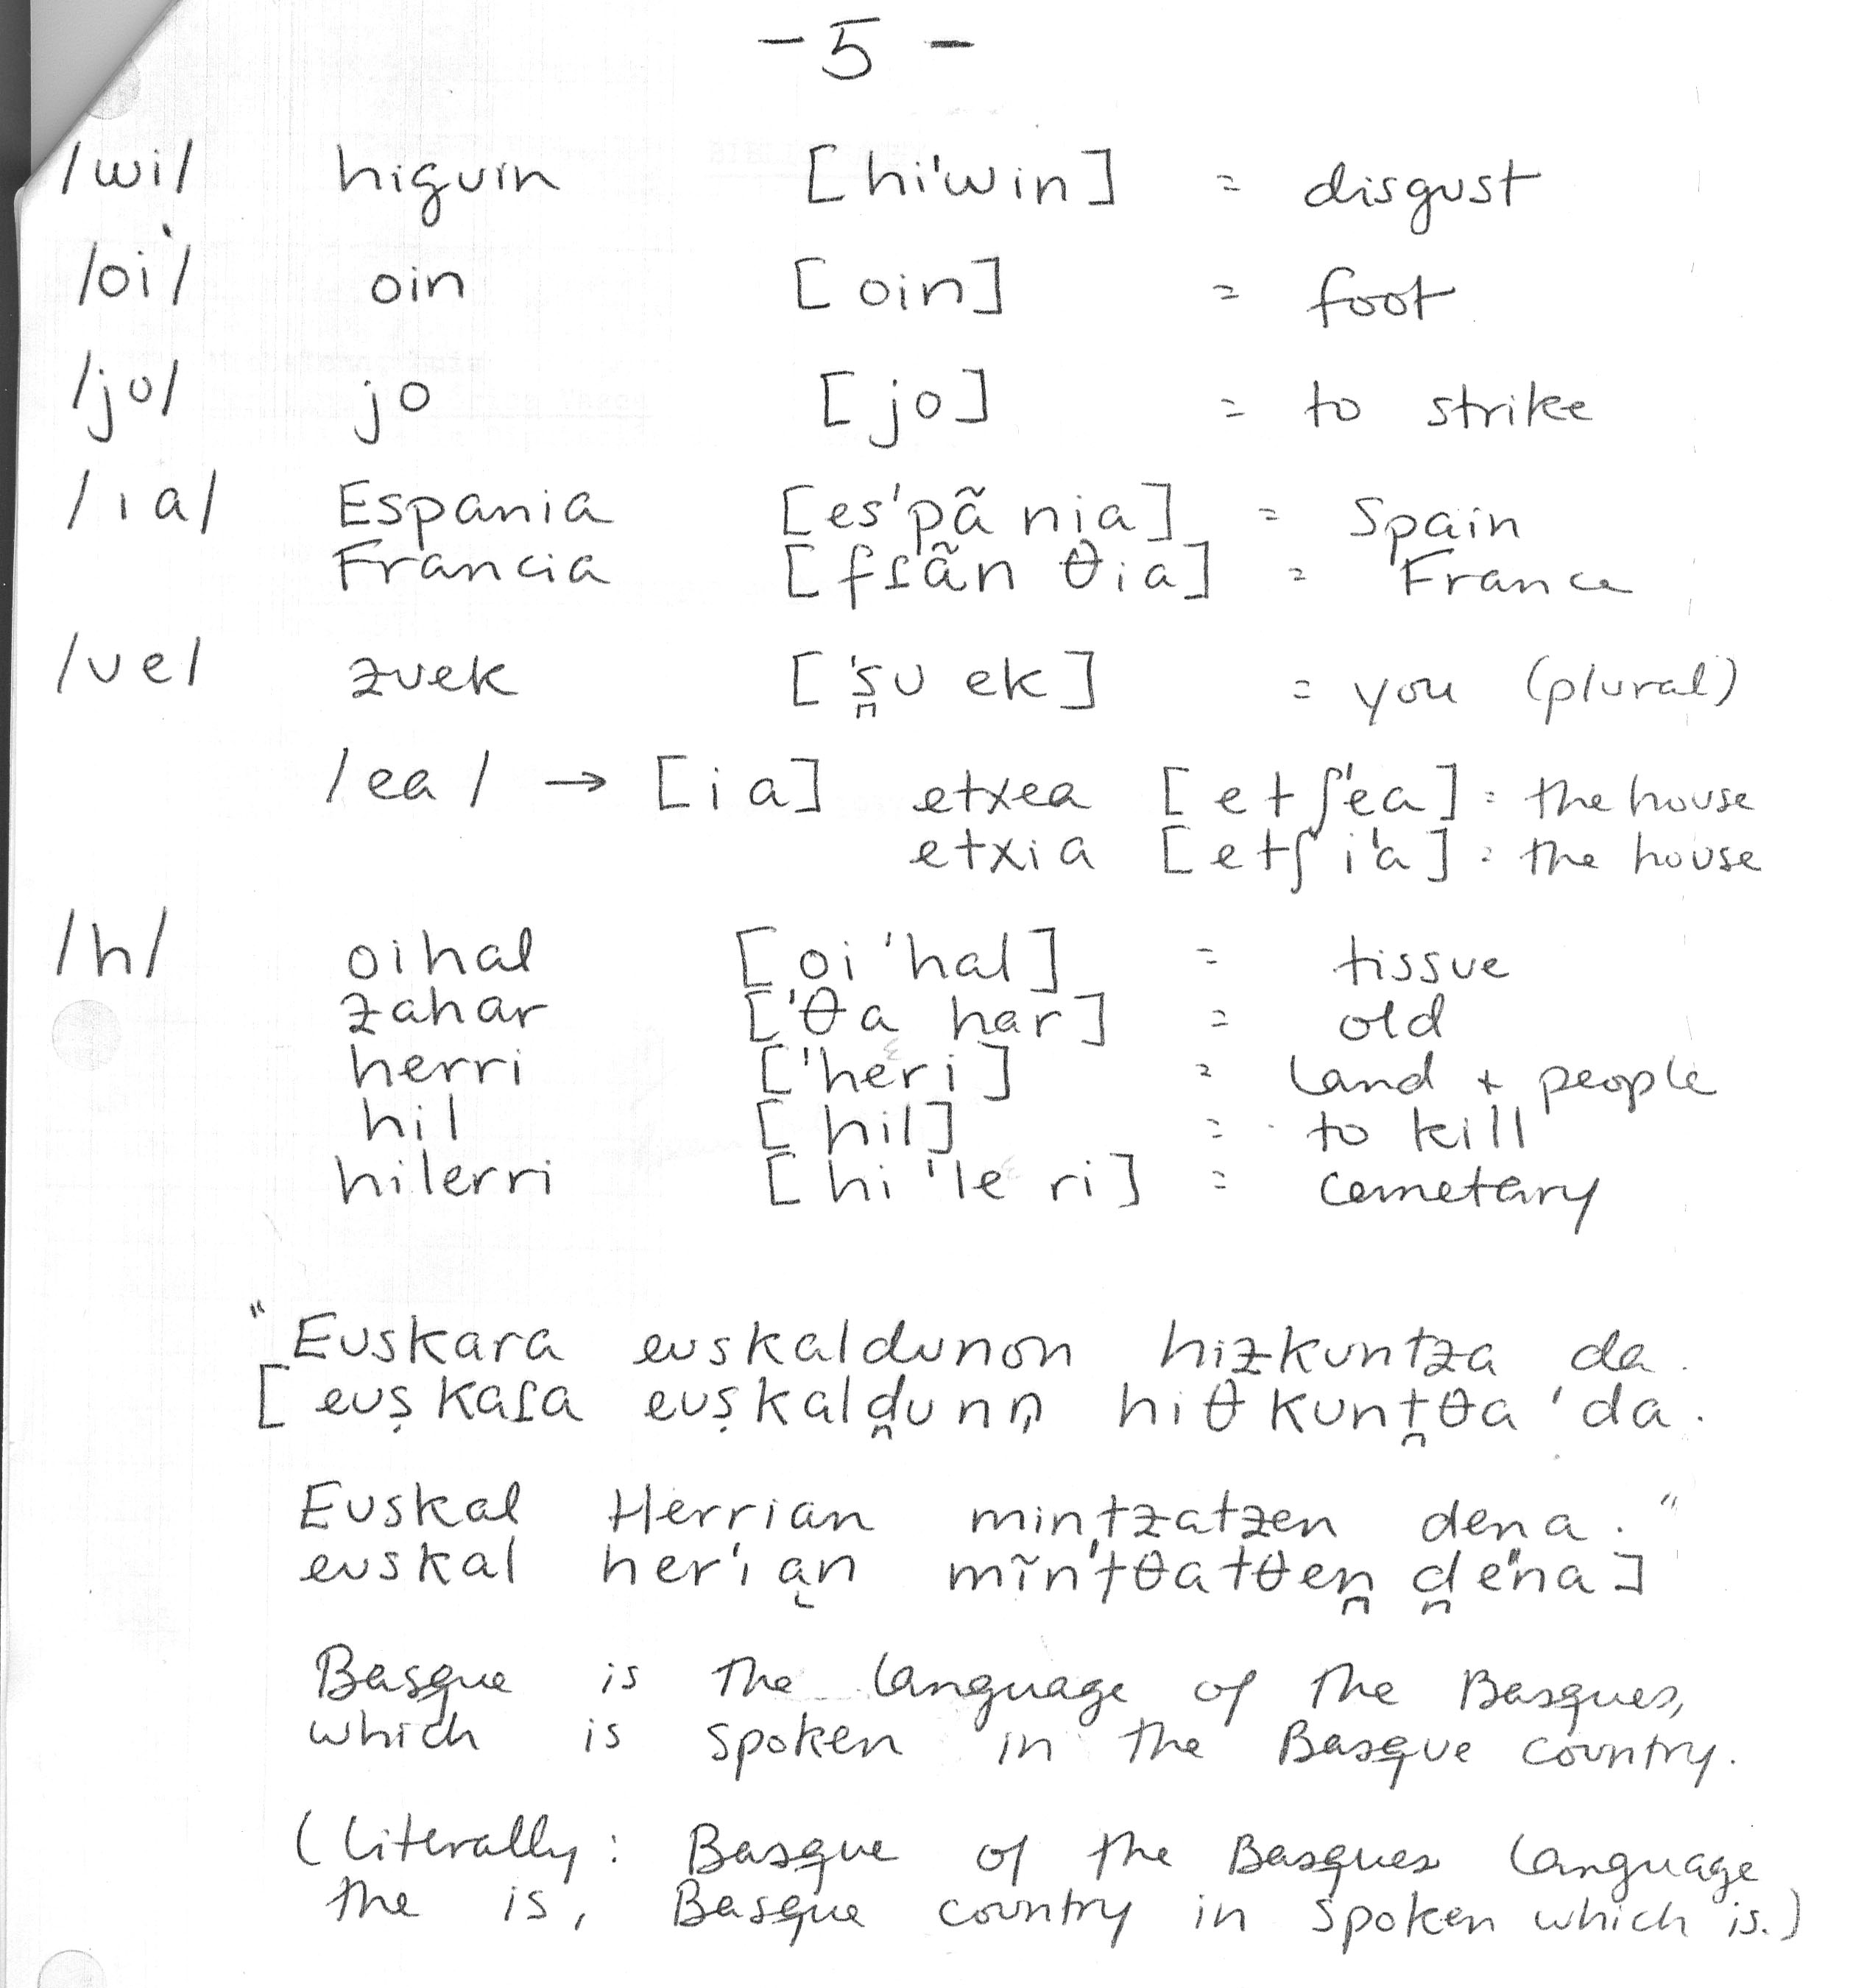 - 5 -
/wi/ higuin [hi'win] = disgust
/oi/ oin [oin] = foot
/jo/ jo [jo] = to strike
/ia/ Espania [es'pã nia] = Spain
Francia [fɾãn θia] = France
/ue/ zuek ['s̺u ek] = you (plural)
/ea/ → [ia] etxea [etʃ'ea] = the house
etxia [etʃi'a] = the house
/h/ oihal [oi'hal] = tissue
zahar ['θa har] = old
herri ['heri] = land + people
hil [hil] = to kill
hilerri [hi'le ri] = cemetary
"Euskara euskaldunon hizkuntza da.
[euṣkaɾa euṣkald̪unṇ hiθkunt̪θa 'da.
Euskal Herrian mintzatzen dena."
euskal her'ian mĩn'tθatθen̪ d̪e'na]
Basque is the language of the Basques,
which is spoken in the Basque country.
(literally: Basque of the Basques language
the is, Basque country in spoken which is.)